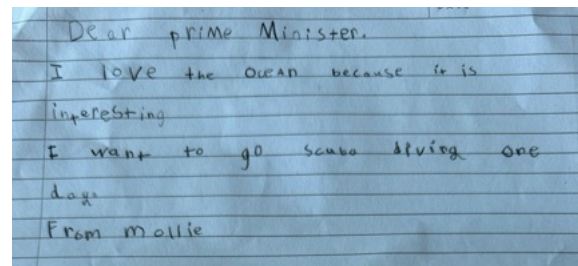 Dear prime Minister.
I love the Ocean because it is
interesting
I want to go scuba diving one
day.
From mollie